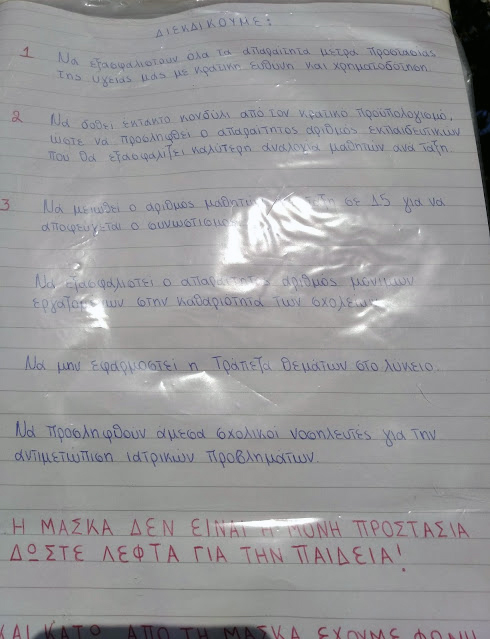 ΔΙΕΚΔΙΚΟΥΜΕ:
1 Να εξασφαλιστουν όλα τα απαραίτητα μέτρα προστασίας
της υγείας μας με κρατική ευθύνη και χρηματοδότηση.
2 Να δοθεί έκτακτο κονδύλι από τον κρατικό προϋπολογισμό,
ώστε να προσληφθεί ο απαραίτητος αριθμός εκπαιδευτικών
που θα εξασφαλίζει καλύτερη αναλογία μαθητών ανά τάξη.
3 Να μειωθεί ο αριθμός σε 15 για να
αποφεύγεται ο
Να εξασφαλιστεί ο απαραίτητος αριθμός μόνιμων
στην καθαριότητα των
Να μην εφαρμοστεί η Τράπεζα Θεμάτων στο λύκειο.
Να προσληφθούν άμεσα σχολικοί νοσηλευτές για την
αντιμετώπιση ιατρικών προβλημάτων.
Η ΜΑΣΚΑ ΔΕΝ ΕΙΝΑΙ Η ΜΟΝΗ ΠΡΟΣΤΑΣΙΑ
ΔΩΣΤΕ ΛΕΦΤΑ ΓΙΑ ΤΗΝ ΠΑΙΔΕΙΑ!
ΚΑΙ ΚΑΤΩ ΑΠΟ ΤΗ ΜΑΣΚΑ ΕΧΟΥΜΕ ΦΩΝΗ